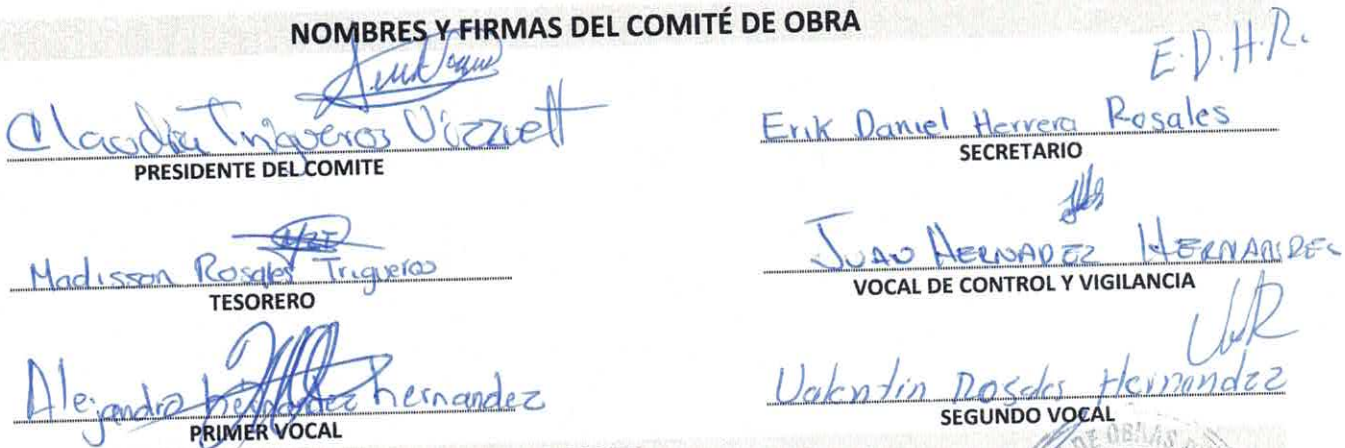 NOMBRES Y FIRMAS DEL COMITÉ DE OBRA
Claudia Trigueros Vizzuett
PRESIDENTE DEL COMITE
E.D.H.R.
Erik Daniel Herrera Rosales
SECRETARIO
Madisson Rosales Trigueros
TESORERO
JUAN HERNADEZ HERNANDEZ
VOCAL DE CONTROL Y VIGILANCIA
Alejandro hernandez hernandez
PRIMER VOCAL
Valentin Rosales Hernandez
SEGUNDO VOCAL
DE OBRAS